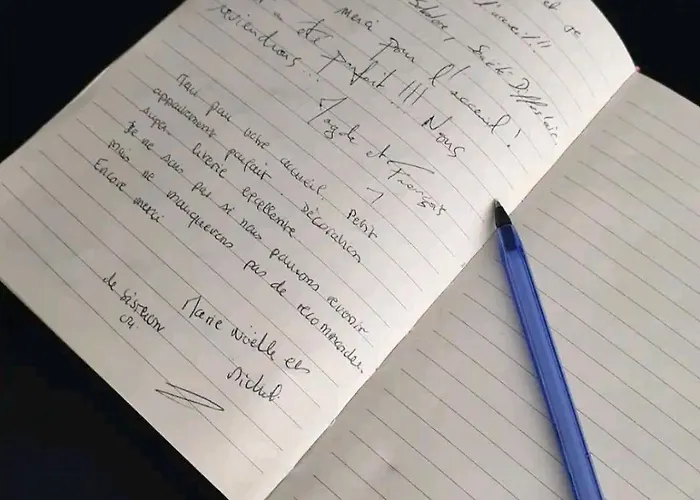 et se
l'accueil !!!
merci pour l'accueil !
été parfait !!! Nous
reviendrons...
Magde et François
Tout pour votre accueil. Petit
appartement parfait. Décoration
super. Literie excellente
Je ne sais pas si nous pourrons revenir
mais ne manquerons pas de recommander.
Encore merci
Marie Noëlle et
Michel
de Sisteron
04.